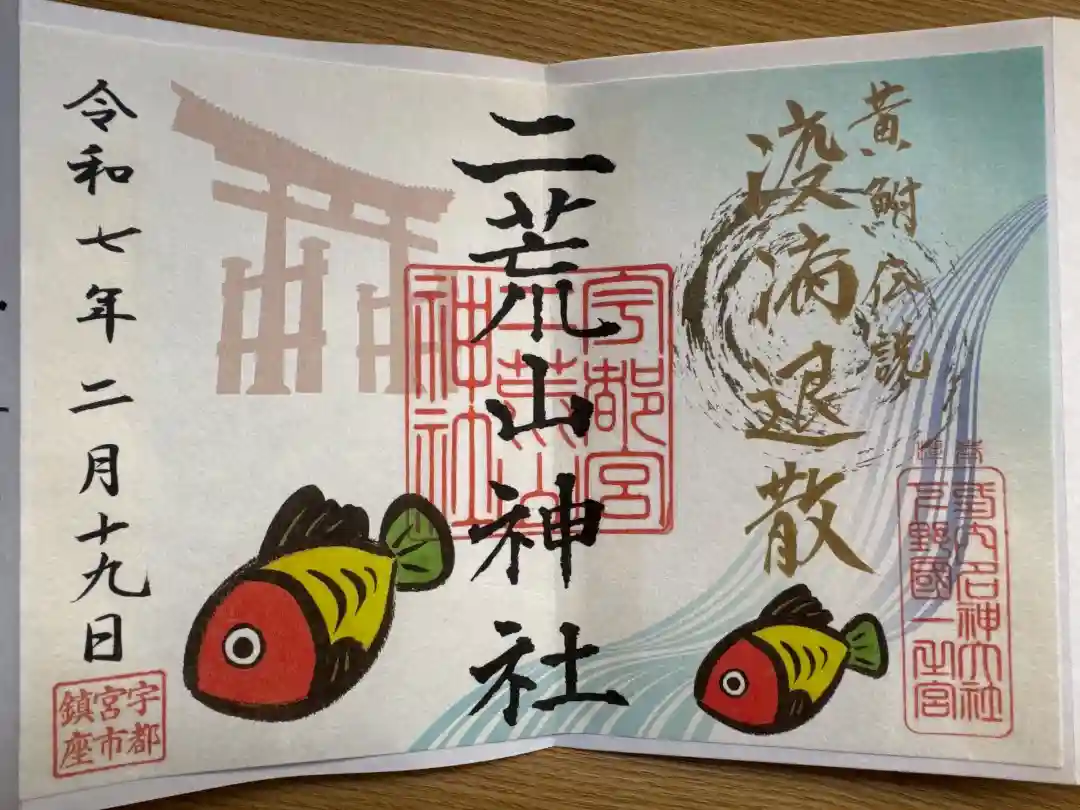 黄鮒伝説
疫病退散
式内名神大社
下野國一之宮
二荒山神社
宇都宮
二荒山
神社
令和七年二月十九日
宇都
宮市
鎮座